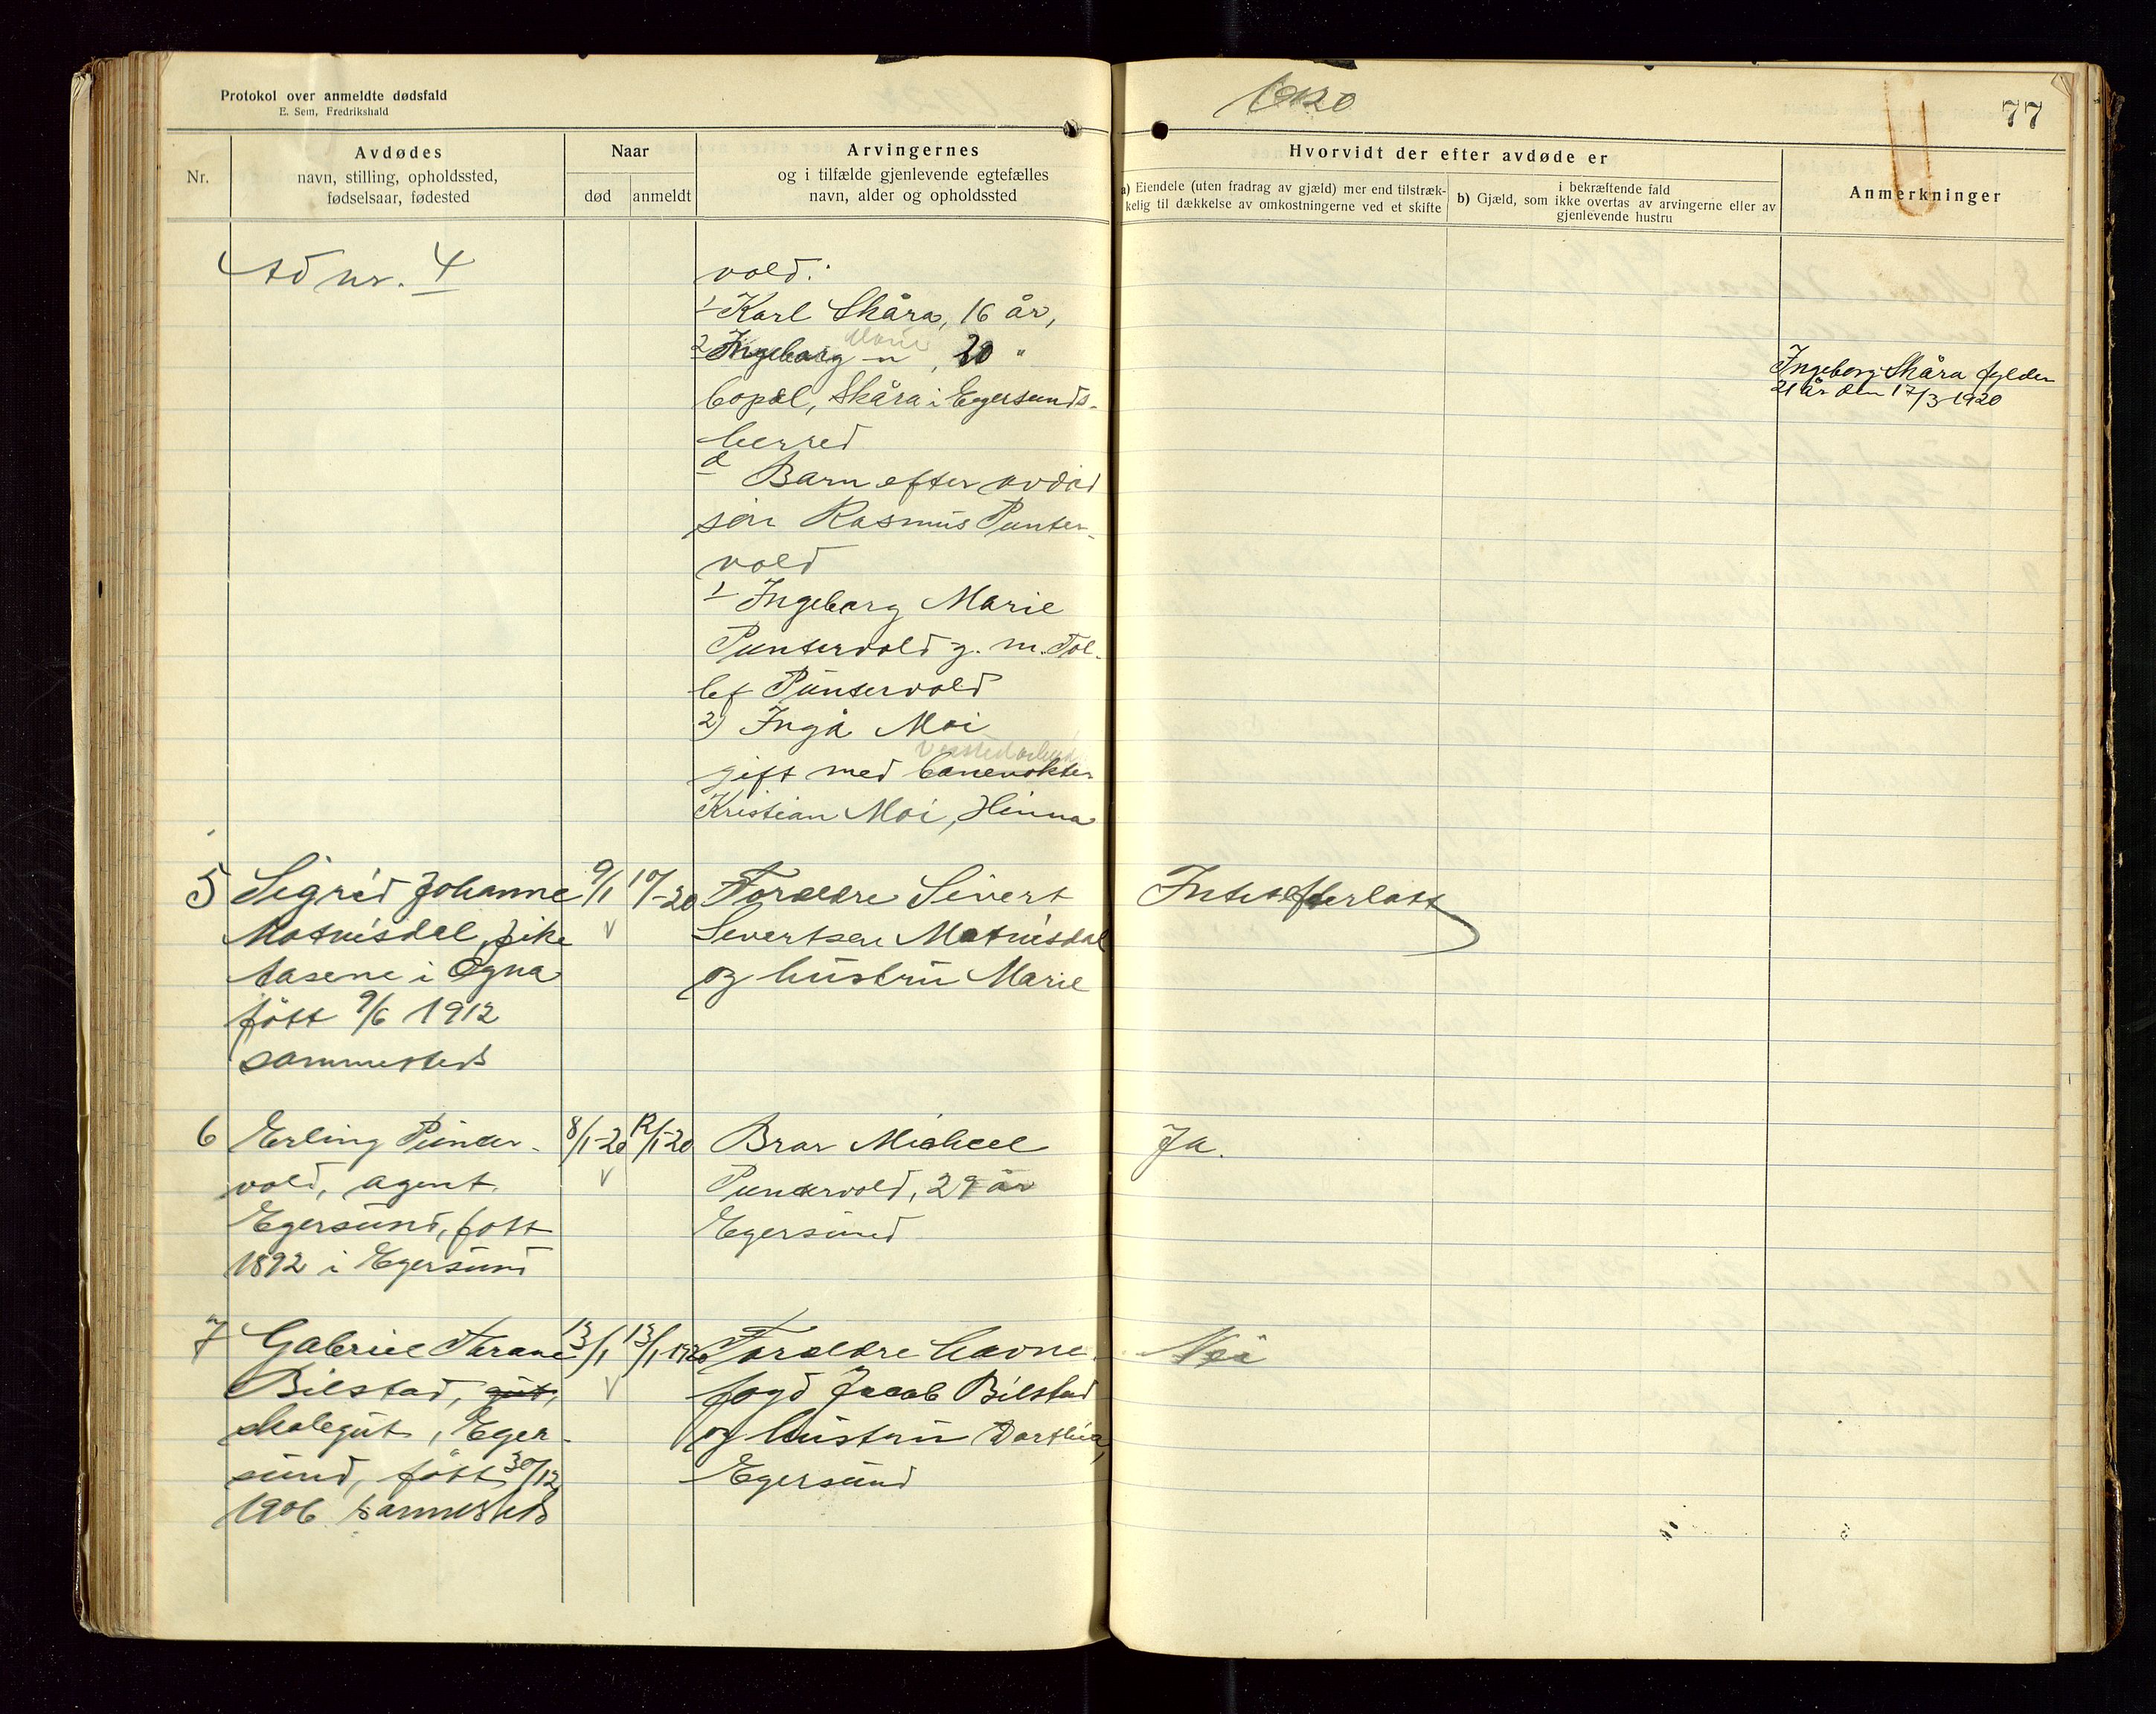 Protokol over anmeldte dødsfald
E. Sem, Fredrikshald
1920
77
Nr.
Avdødes
navn, stilling, opholdssted,
fødselsaar, fødested
Naar
død
anmeldt
Arvingernes
og i tilfælde gjenlevende egtefælles
navn, alder og opholdssted
Hvorvidt der efter avdøde er
a) Eiendele (uten fradrag av gjæld) mer end tilstræk-
kelig til dækkelse av omkostningerne ved et skifte
i bekræftende fald
b) Gjæld, som ikke overtas av arvingerne eller av
gjenlevende hustru
Anmerkninger
Ad nr. 4
vold:
1 Karl Skåra, 16 år,
Marie
2 Ingeborg –"– , 20 "
bopæl, Skåra i Egersunds-
herred
d Barn efter avdød
søn Rasmus Punter-
vold
1 Ingeborg Marie
Puntervold g. m. Tol-
lef Puntervold
2) Inga Moi
gift med banevokter
Kristian Moi, Hinna
Ingeborg Skåra fylder
21 år den 17/3 1920
5 Sigrid Johanne
Matnisdal, pike
Aasene i Ogna
født 9/6 1912
sammesteds
9/1
10/1-20
Forældre Sivert
Sivertsen Matnisdal
og hustru Marie
Intet efterlatt
6 Erling Punter-
vold, agent,
Egersund, født
1892 i Egersund
8/1-20
12/1-20
Bror Michael
Puntervold, 29 år
Egersund
Ja.
7 Gabriel Thrane
Bilstad, gut,
skolegut, Eger-
sund, født 30/12
1906 sammesteds
13/1
13/1-1920
Forældre havne-
fogd Jacob Bilstad
og hustru Dorthea,
Egersund
Nei